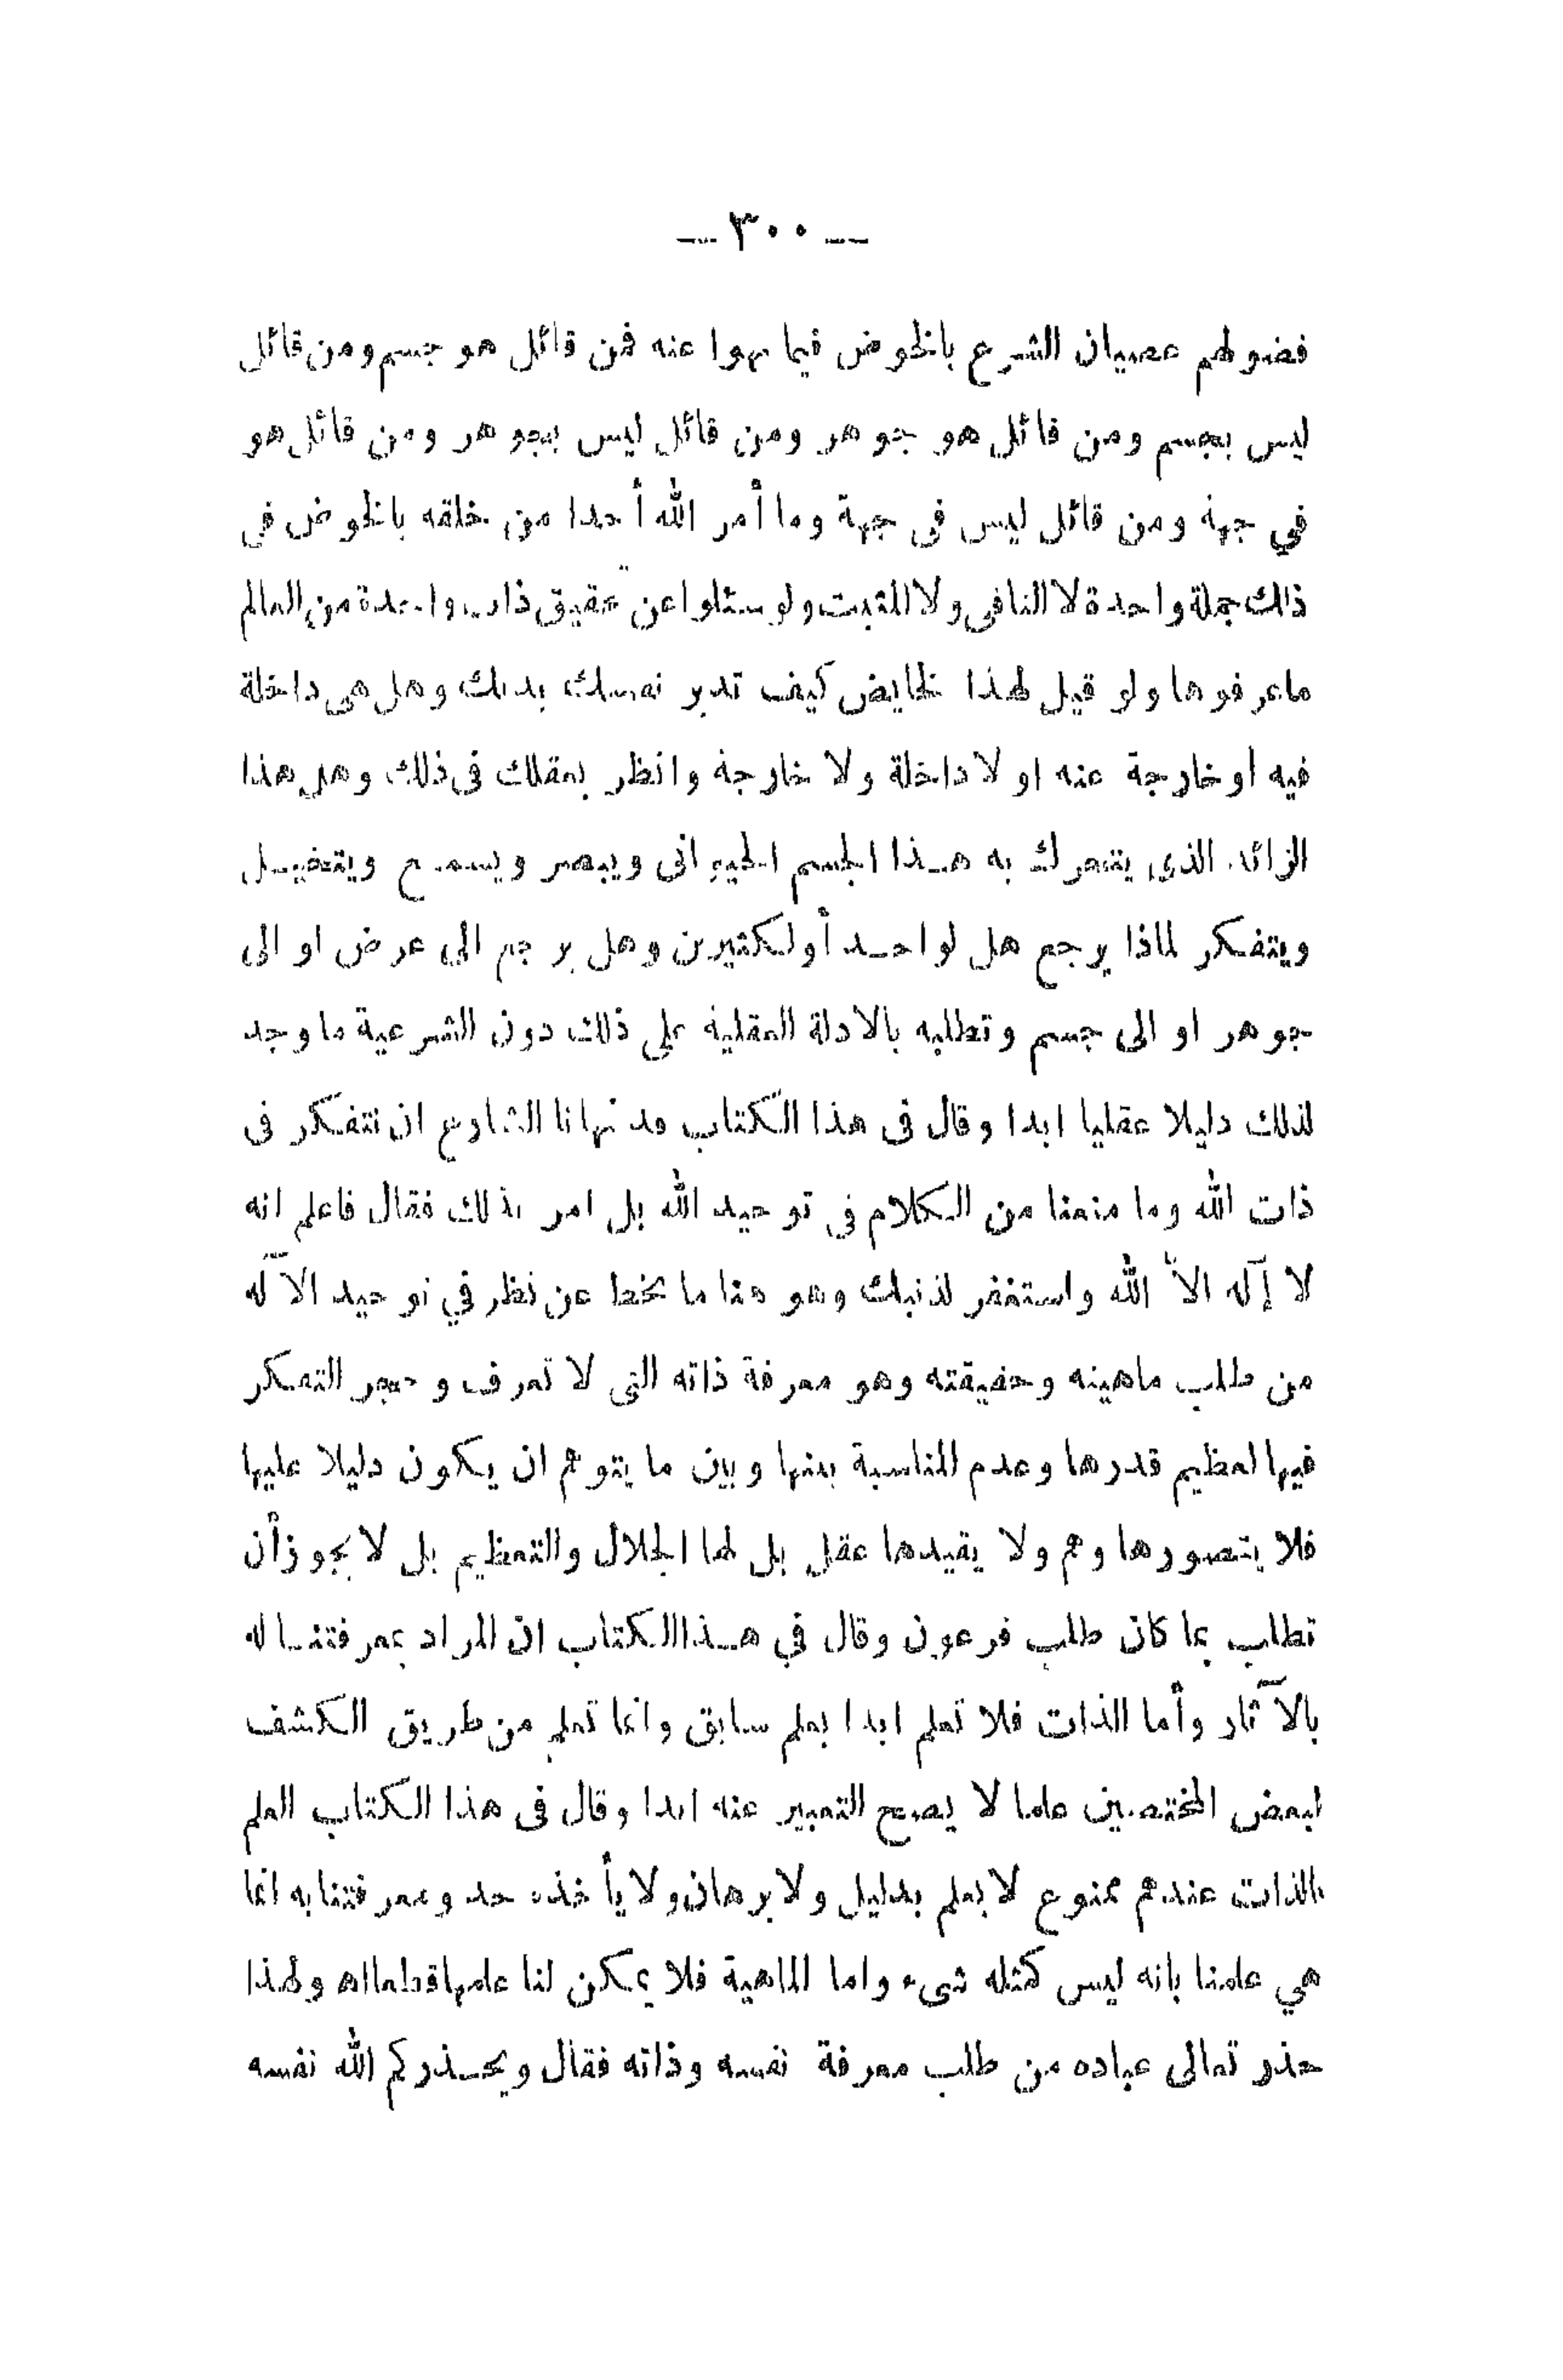 — ٣٠٠ —
فضولهم عصيان الشرع بالخوض فيما نهوا عنه فمن قائل هو جسم ومن قائل
ليس بجسم ومن قائل هو جوهر ومن قائل ليس بجوهر ومن قائل هو
في جهة ومن قائل ليس فى جهة وما أمر الله أحدا من خلقه بالخوض فى
ذلك جملة واحدة لا النافى ولا المثبت ولو سئلوا عن تحقيق ذات واحدة من العالم
ماعرفوها ولو قيل لهذا لخايض كيف تدبر نفسك بدنك وهل هى داخلة
فيه او خارجة عنه او لا داخلة ولا خارجة وانظر بعقلك فى ذلك وهل هذا
الزائد الذى يتحرك به هذا الجسم الحيوانى ويبصر ويسمع ويتخيل
ويتفكر لماذا يرجع هل لواحد أو لكثيرين وهل يرجع الى عرض او الى
جوهر او الى جسم وتطلبه بالادلة العقلية على ذلك دون الشرعية ما وجد
لذلك دليلا عقليا ابدا وقال فى هذا الكتاب قد نهانا الشارع ان نتفكر فى
ذات الله وما منعنا من الكلام فى توحيد الله بل امر بذلك فقال فاعلم انه
لا إله الاّ الله واستغفر لذنبك وهو هنا ما يخط عن نظر في توحيد الآله
من طلب ماهيته وحقيقته وهو معرفة ذاته التى لا تعرف وحجر التفكر
فيها لعظيم قدرها وعدم المناسبة بينها وبين ما يتوهم ان يكون دليلا عليها
فلا يتصورها وهم ولا يقيدها عقل بل لها الجلال والتعظيم بل لا يجوز أن
تطلب بما كان طلب فرعون وقال في هذا الكتاب ان المراد بمعرفتنا له
بالآثار وأما الذات فلا تعلم ابدا بعلم سابق وانما تعلم من طريق الكشف
لبعض المختصين علما لا يصح التعبير عنه ابدا وقال فى هذا الكتاب العلم
بالذات عندهم ممنوع لا يعلم بدليل ولا برهان ولا يأخذه حد ومعرفتنا به انما
هي علمنا بانه ليس كمثله شىء واما الماهية فلا يمكن لنا علمها قطعا اه ولهذا
حذر تعالى عباده من طلب معرفة نفسه وذاته فقال ويحذركم الله نفسه